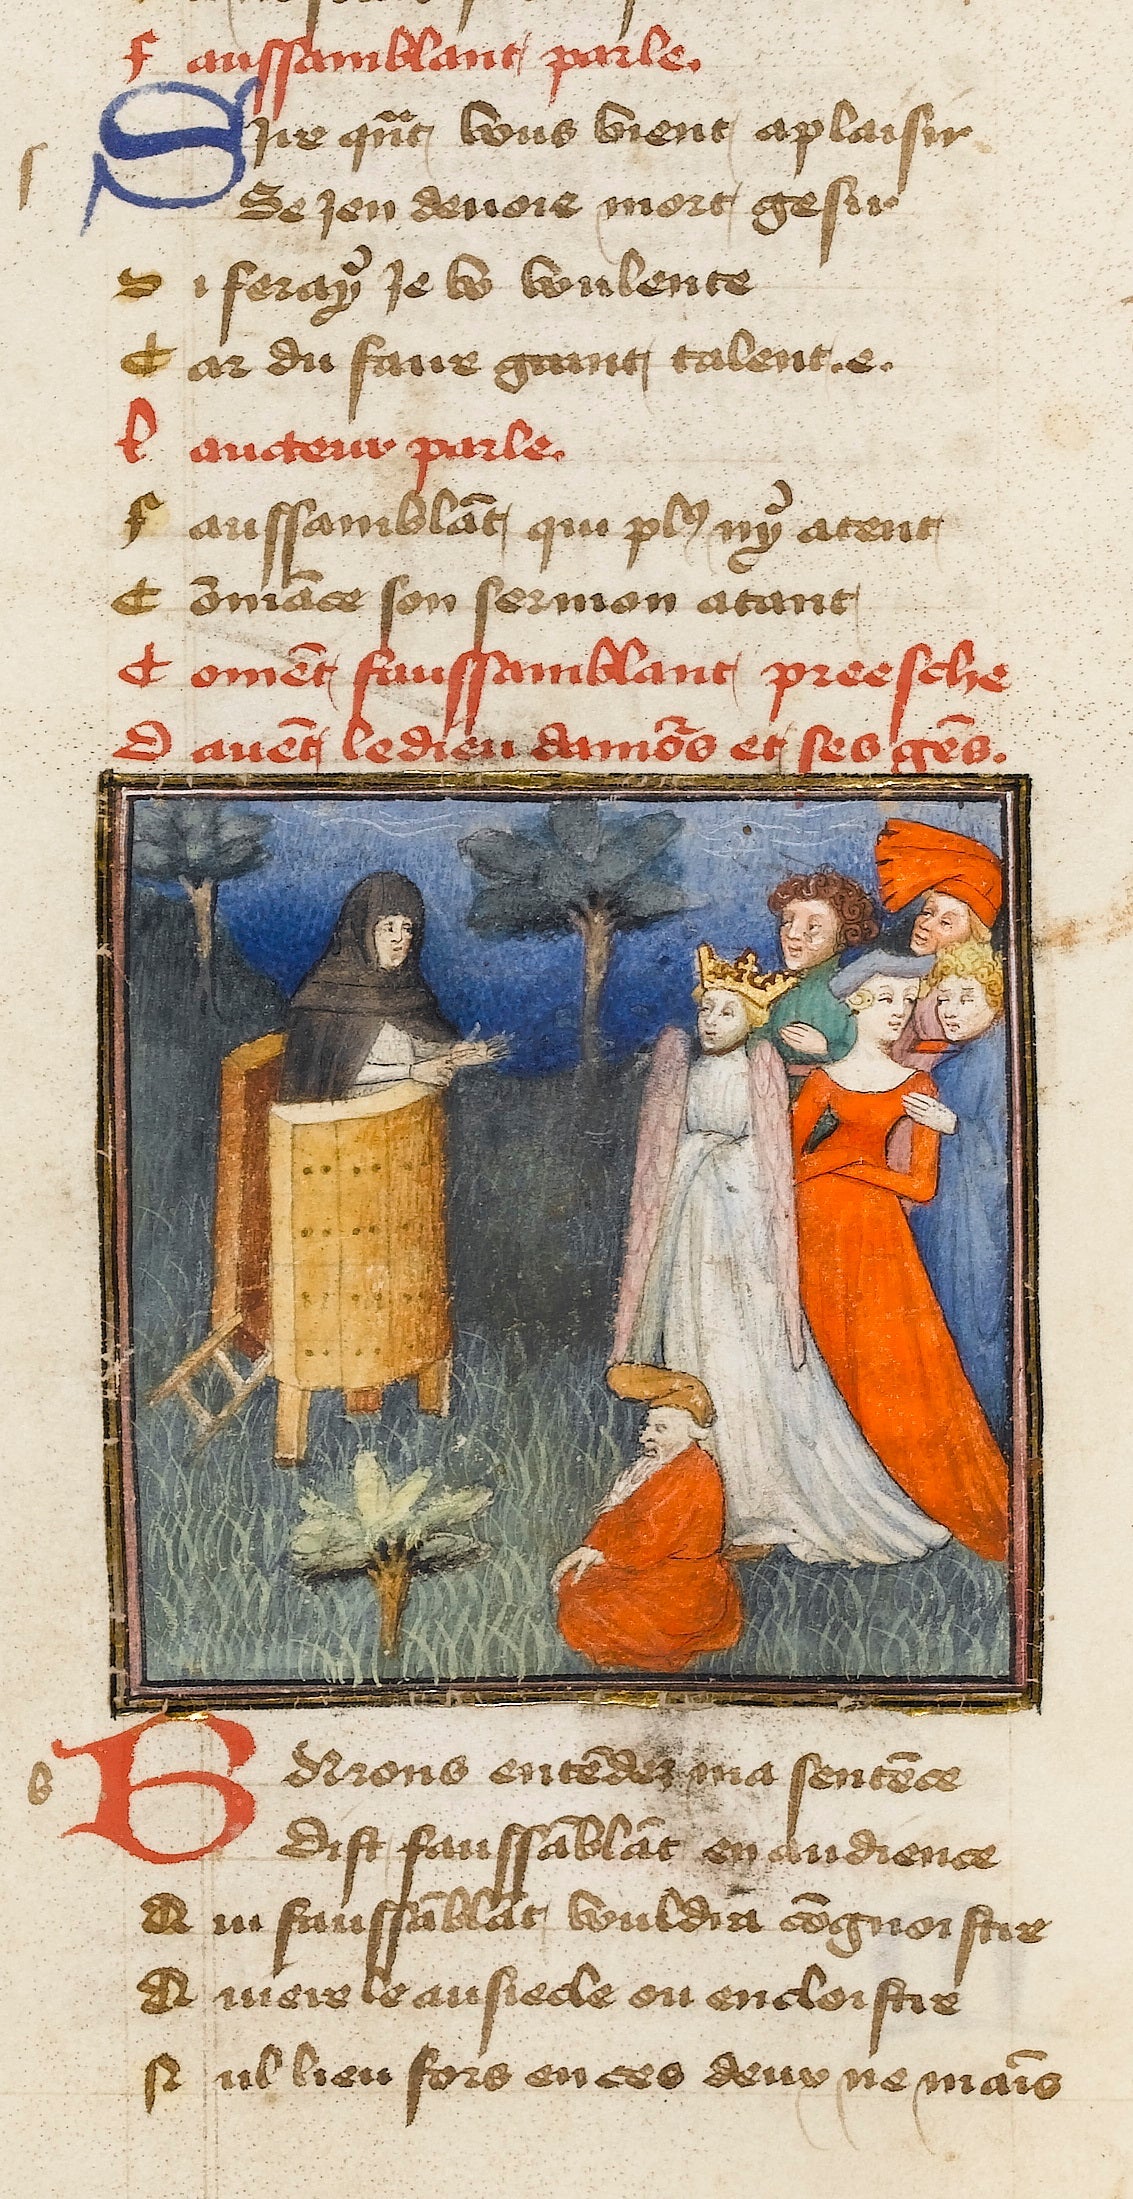 F aussamblant parle.
Sire q̃nt vous vient a plaisir
Se jen devoie mort gesir
S i feray je vo voulente
C ar du faire grant talent. e.
L aucteur parle.
F aussamblãt qui plꝰ ny atent
C õmãce son sermon atant
C omẽt faussamblant preesche
D avẽt le dieu damõs et ses gẽs.
Barons entẽdez ma sentẽce
Dist faussãblãt en audience
Q ui faussãblãt vouldra cõgnoistre
Q uiere le au siecle ou en cloistre
N ul lieu fors en ces deux ne maĩs